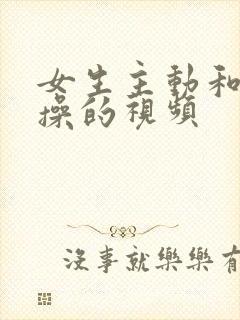 女生主動和
操的視頻
沒事就樂樂有